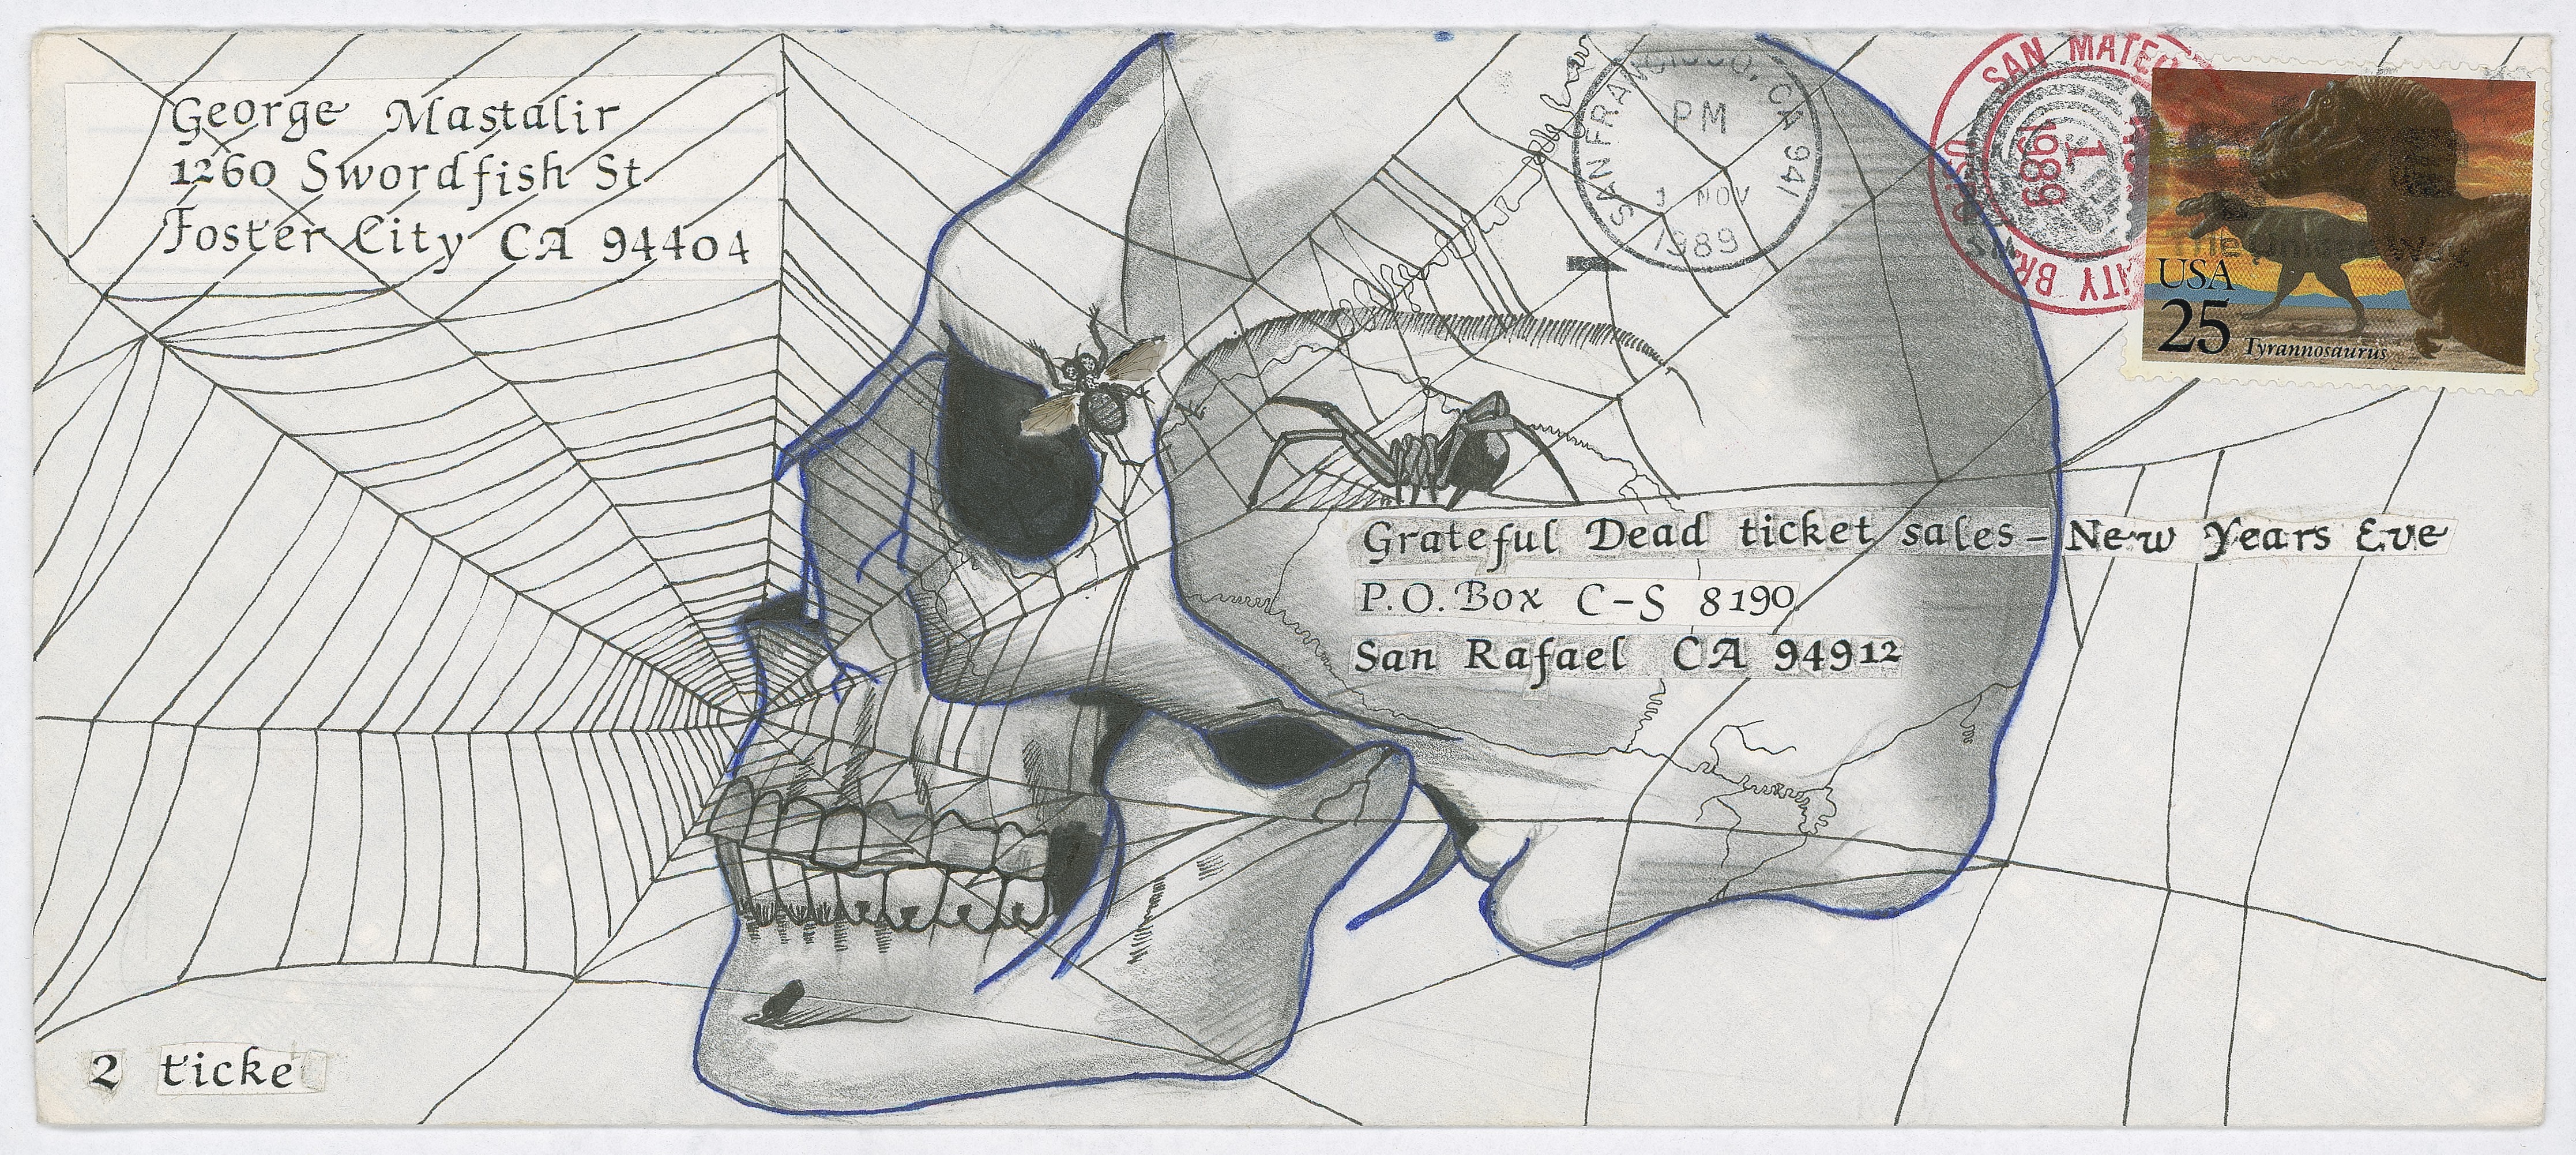 George Mastalir
1260 Swordfish St
Foster City CA 94404
SAN FRANCISCO, CA 941
PM
1 NOV
1989
SAN MATEO
1
1989
USA
25
Tyrannosaurus
Grateful Dead ticket sales – New Years Eve
P.O. Box C-S 8190
San Rafael CA 94912
2 ticke